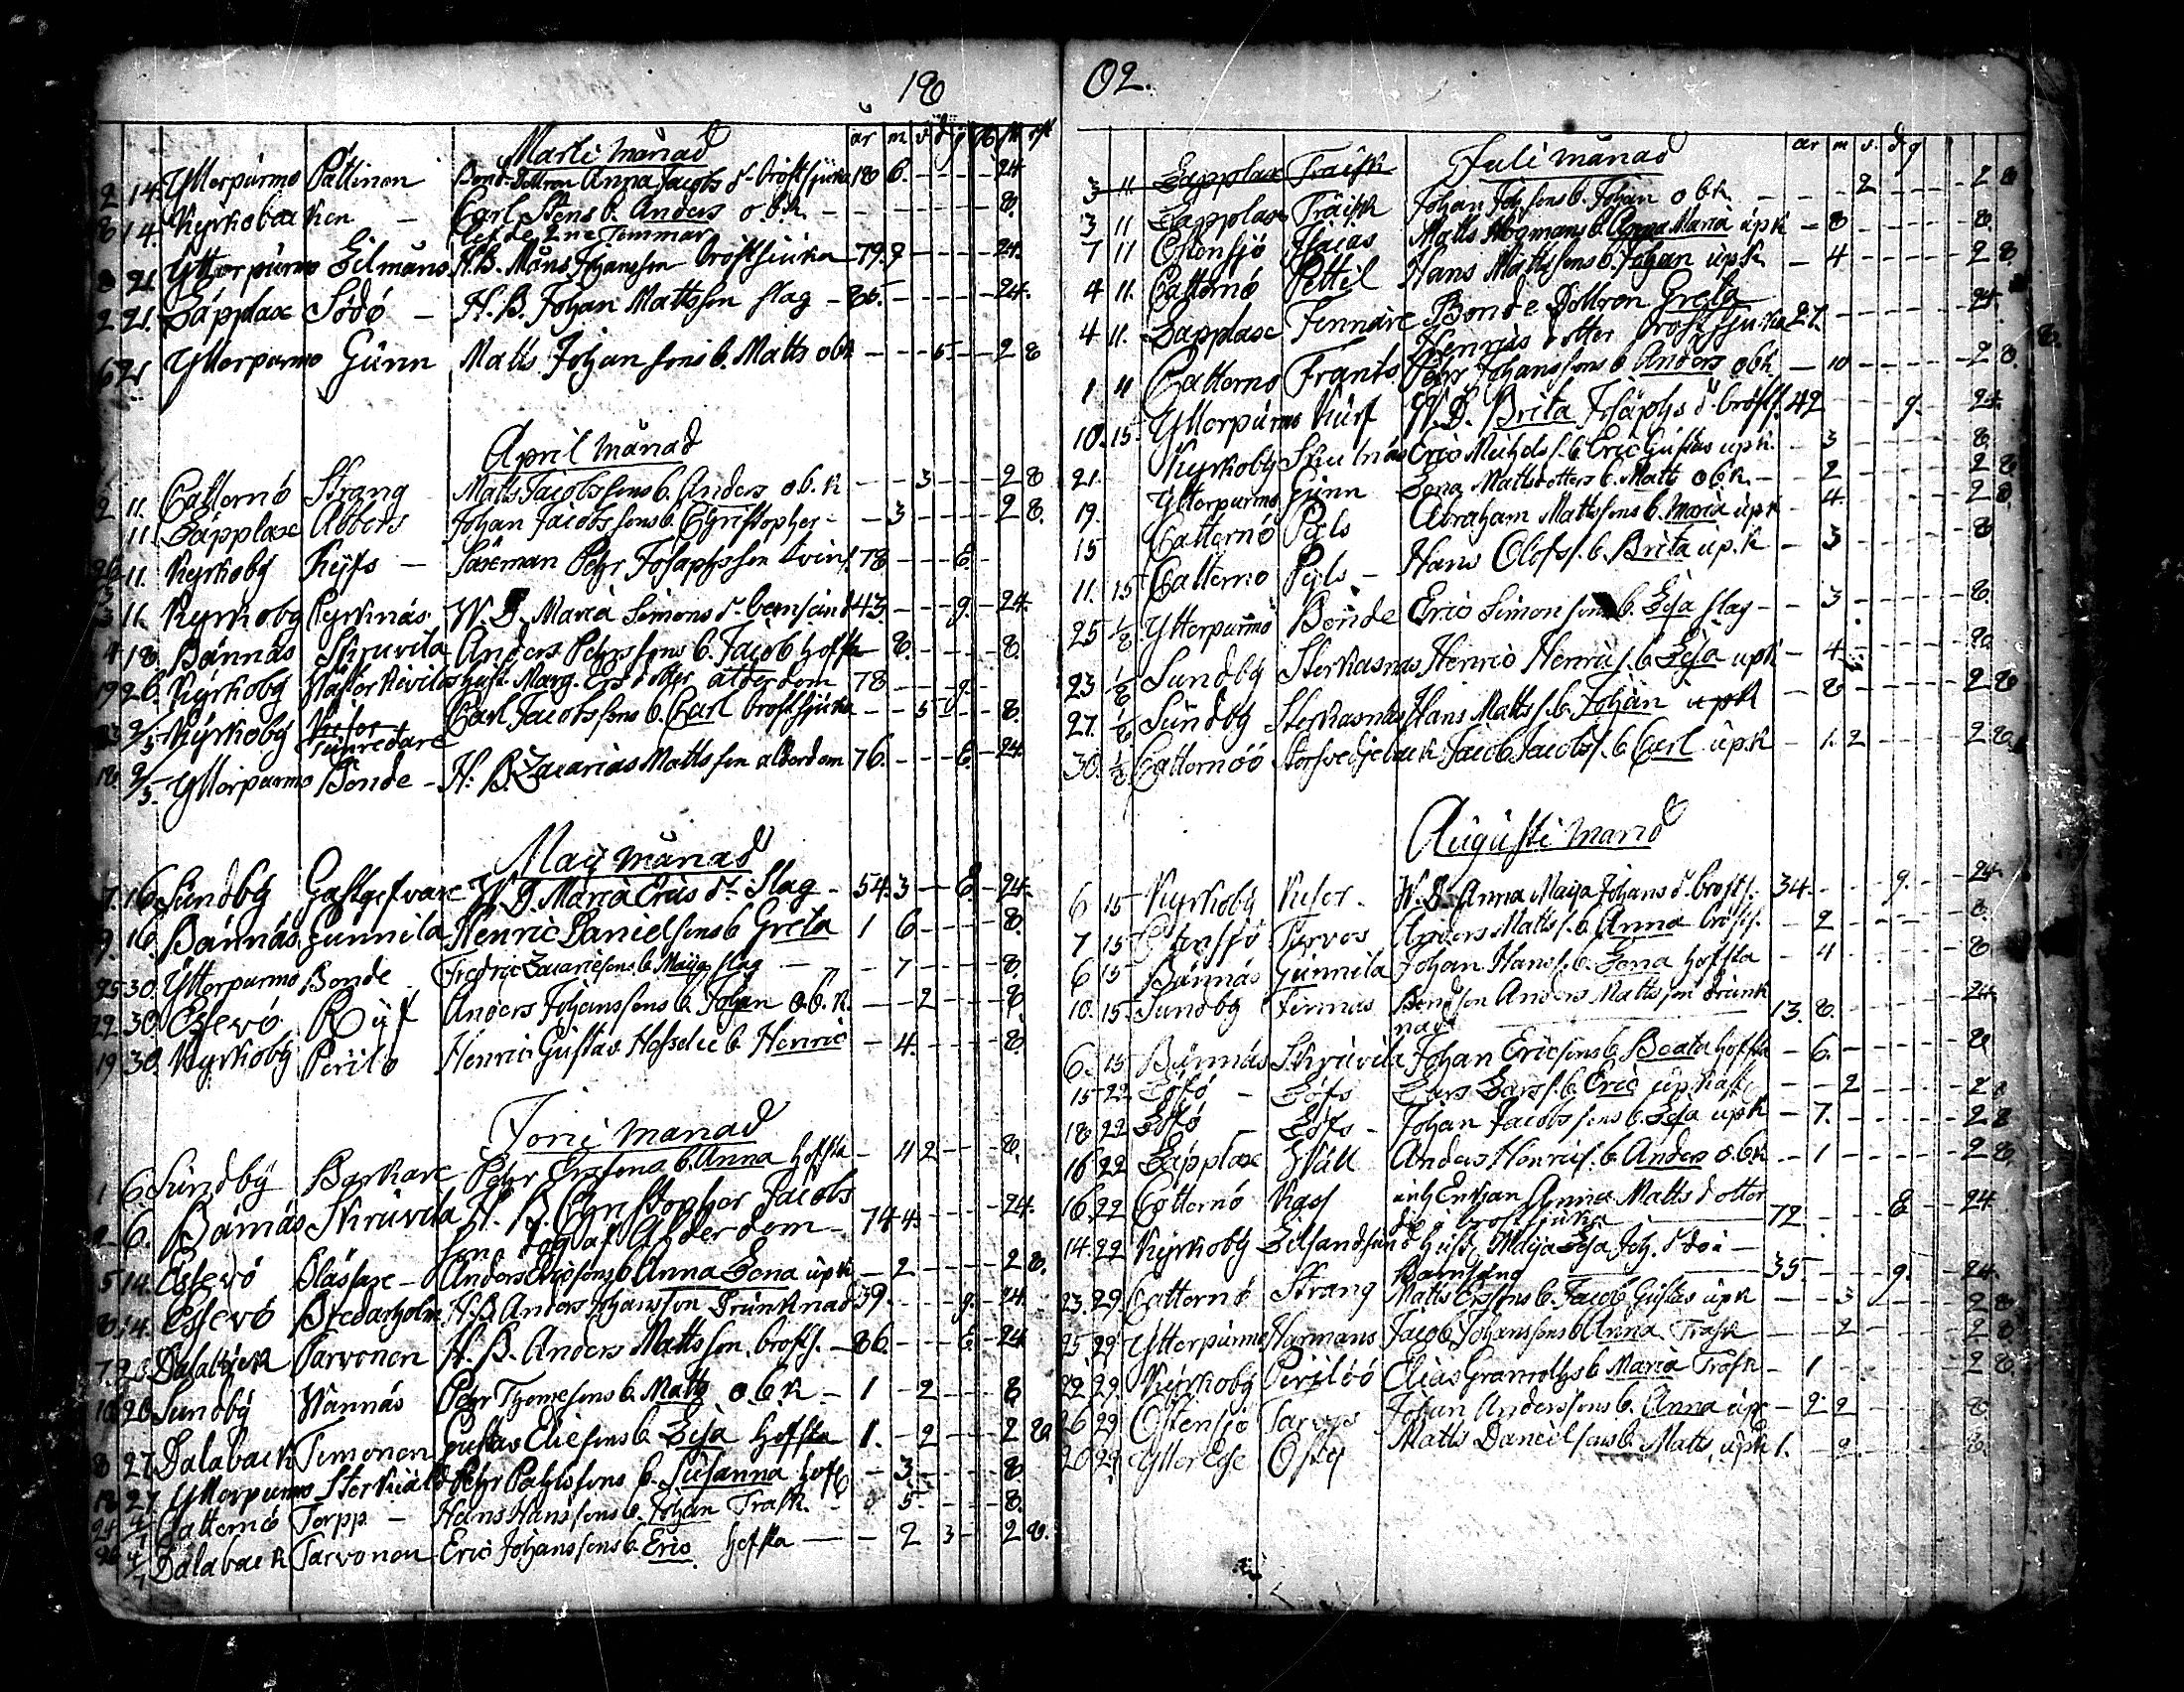 18
år m v d g
Marti månad
2 14. Ytterpurmo Pättinen Bond. Dottron Anna Jacobs d:r bröstsjuka 18 6. 24
8 14. Kyrkobacken Carl Stens b. Anders obk. 8.
lefde 2ne Timmar
21 Ytterpurmo Lilmåns H.B. Måns Johansson bröstsjuka 79. 9 24.
2 21. Läpplax Södö H. B. Johan Mattsson slag 24.
6 21 Ytterpurmo Gunn Matts Johanssons b. Matts obk 5. 2 8
April månad
2 11. Catternö Strang Matts Jacobssons b. Anders o.b.k 3 2 8
11. Läpplax Abbors Johan Jacobssons b. Christopher 3 2 8.
11. Kyrkoby Ryss Pehr Josaphsson 78 E.
3 11. Kyrkoby Pyrknäs W. D. Maria Simons d:r barnsäng 43. g. 24.
4 18. Bännäs Skruvila Anders Pehrssons b. Jacob hosta 8. 8.
19 26. Kyrkoby hust. Marg. Ers dotter ålderdom 78 g.
2/5 Kyrkoby Carl Jacobssons b. Carl bröstsjuka 5 8.
18. 9/5. Ytterpurmo Bonde H. B. Zacarias Mattsson ålderdom 76. E. 24.
Maij månad
7. 16. Sundby Gästgifvare W. D. Maria Erics d:r slag 54. 3 E. 24.
9. 16. Bännäs Gunnila Henric Danielsons b. Greta 1 6 8.
25 30. Ytterpurmo Bonde Fredric Zacariesons b. Maija slag 7 8.
22 30. Essevö Ryss Anders Johanssons b. Johan o.b.k. 2 8.
19 30. Kyrkoby Perilö Henric Gustav b. Henric 4. 8.
Joni månad
1 6. Sundby Barkare Pehr Erssons b. Anna hosta 11 2 8.
2 6. Bännäs Skruvila H. B. Christopher Jacobs 74 4. 24.
son dog af Ålderdom
5 14. Essevö Slässare Anders b. Anna Lena upk. 2 2 8.
8. 14. Essevö Bredarholm H. B. Anders Johansson Drunknad 39. g. 24.
7. 20. Dalaback Parvonen H. B. Anders Mattsson brösts. 86. E. 24
18 20. Sundby Wännäs Pehr Thomesons b. Matts o.b.k 1 2 8
8 27. Dalaback Timonen Gustav Eliesons b. Lisa hosta 1. 2 2 8.
18 27. Ytterpurmo Sterkvald Pehr Pahlssons b. Susanna hosta 3. 8
24 4/7 Catternö Torpp Hans Hanssons b. Johan Trask. 5. 8.
26 4/7 Dalaback Parvonen Eric Johanssons b. Eric hosta 2 3 2 8.
02.
år m v. d g
Juli månad
3 11 Läpplax Träisk
3 11 Läpplax Träisk Johan Joh. sons b. Johan obk. 2 2 8
7 11 Östensjö Isacas Matts b. Anna Maria upk 8 8.
4 11. Catternö Pettil Hans Mattssons b. Johan upk 4 2 8.
4 11. Läpplax Finnäre Bonde Dottron Greta 27. 24.
Henriks dotter bröstsjuka
1 11 Catternö Frants Pehr Johanssons b. Anders obk. 10 2 8.
10. 15. Ytterpurmo W. D. Brita Josaphs d:r brösts. 42 g. 24.
21. Kyrkoby Skutnäs Eric Michelss. b. Eric Gustav upk. 3 8
19. Ytterpurmo Gunn Lena Mattsdotters b. Matts obk. 2 2 8
15 Catternö Pyls Abraham Mattssons b. Maria upk 4. 2 8.
11. 15 Catternö Pyls Hans Olofs. b. Brita up.k 3 8.
25 1/8. Ytterpurmo Bonde Eric Simonsons b. Lisa slag 3 8.
23 1/8 Sundby Sterkasnäs Henric Henriss. b. Lisa upk 4. 8
27. 1/8 Sundby Sterkasnäs Hans Matts s. b. Johan upk 8 2 8
30. 1/8 Catternöö Storsvedjeback Jacob Jacobs s. b. Carl up.k 1. 2 2 8.
Augusti manad
6 15 Kyrkoby W. D. Anna Maija Johans d:r brösts. 34. g. 24.
7 15 Östensjö Parvos Anders Matts s. b. Anna brösts. 2 8.
6 15 Bännäs Gunnila Johan Hans s. b. Lena hosta 4 8
10. 15. Sundby Finnäs Bondson Anders Mattsson drunk 13. 8. 24.
nad
6. 15 Bännäs Skruvila Johan Ericsons b. Beata hosta 6. 8
15 22 Löfö Löfs Lars Larss. b. Eric upkast. 2 2 8
18 22 Löfö Löfs Johan Jacobssons b. Lisa upk 7. 2 8
16 22 Läpplax Häll Anders Henriss. b. Anders o.bk 1 2 8.
16. 22 Cotternö Kass Enkan Anna Matts dotter 72 E 24
dog i bröstsjuka
14. 22 Kyrkoby hust. Maija Lisa Joh. d. 35. g. 24.
Barnsäng
23. 29. Catternö Strang Matts Erssons b. Jacob Gustav upk 3 2 8.
25 29 Ytterpurmo Harmans Jacob Johanssons b. Anna Trask 2 2 8
22 29. Kyrkoby Perilöö Elias b. Maria Trask 1 2 8.
26 29 Östensjö Parvos Johan Anderssons b. Anna up 2 2 8
20 29 Ytter Esse Matts Danielsons b. Matts upk 1. 2 8.